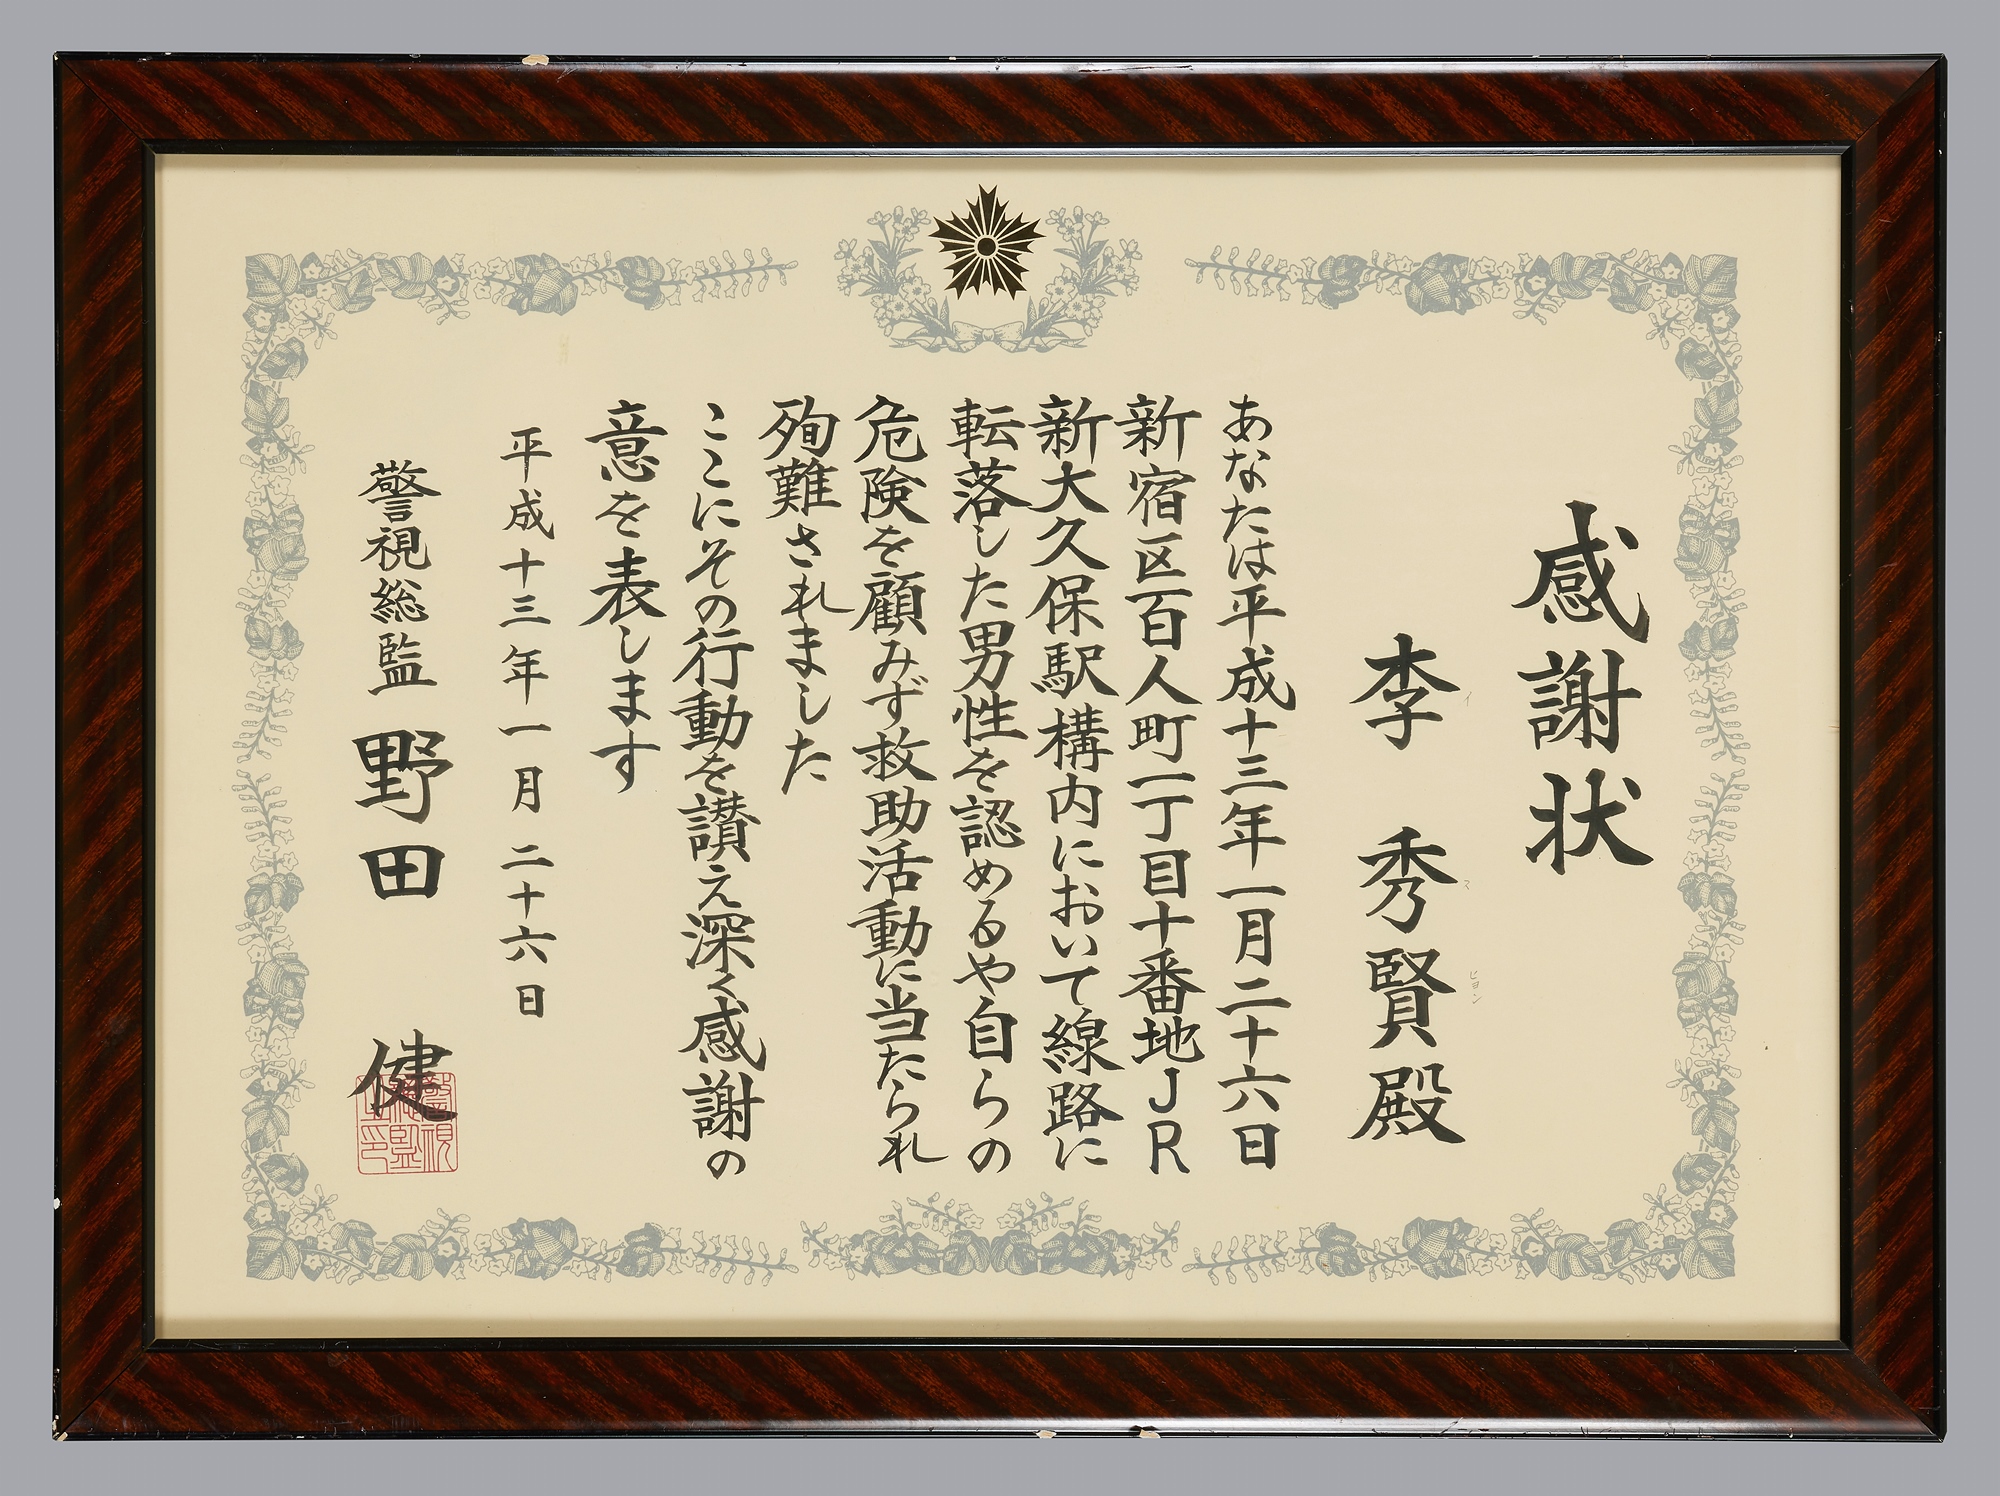 感謝状
李 秀賢殿
イ ス ヒョン
あなたは平成十三年一月二十六日
新宿区百人町一丁目十番地JR
新大久保駅構内において線路に
転落した男性を認めるや自らの
危険を顧みず救助活動に当たられ
殉難されました
ここにその行動を讃え深く感謝の
意を表します
平成十三年一月二十六日
警視総監 野田 健
警視総監之印